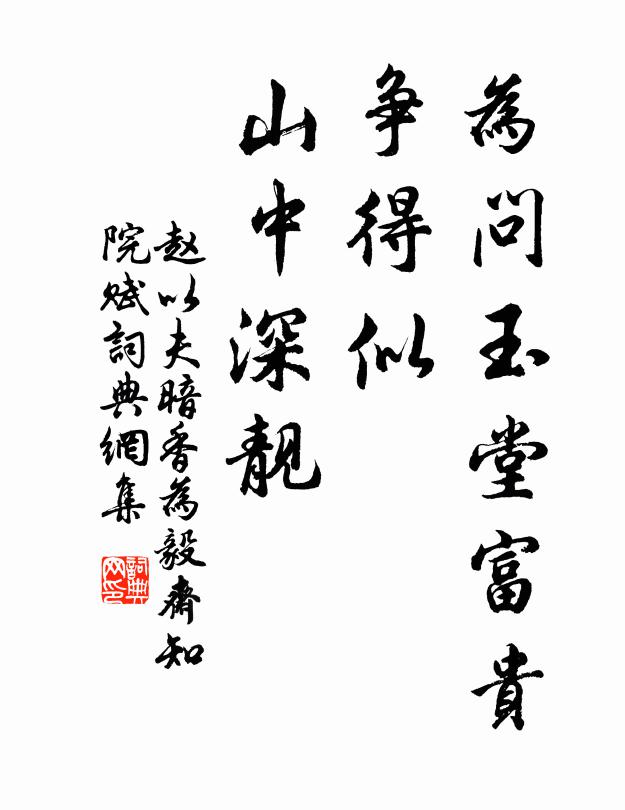 為問玉堂富貴
爭得似
山中深靚
赵以夫暗香為毅齋知
院赋詞典網集
詞典网印